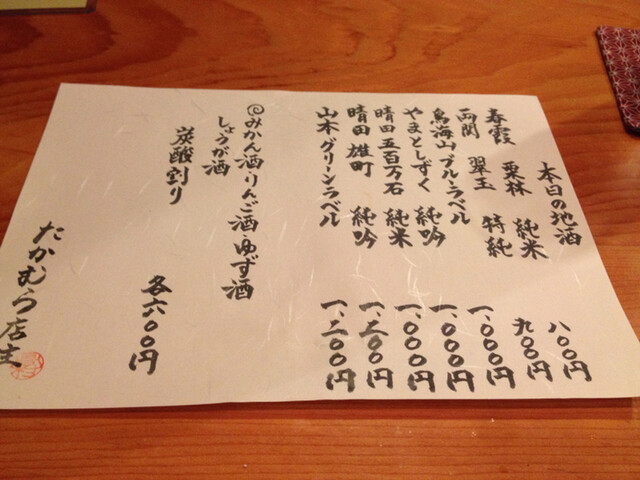 本日の地酒
春霞 栗林 純米 八〇〇円
両関 翠玉 特純 九〇〇円
鳥海山ブルーラベル 一、〇〇〇円
やまとしずく 純吟 一、〇〇〇円
晴田 五百万石 純米 一、〇〇〇円
晴田 雄町 純吟 一、二〇〇円
山本グリーンラベル 一、二〇〇円
◎みかん酒・りんご酒・ゆず酒
しょうが酒
炭酸割り 各六〇〇円
たかむら店主